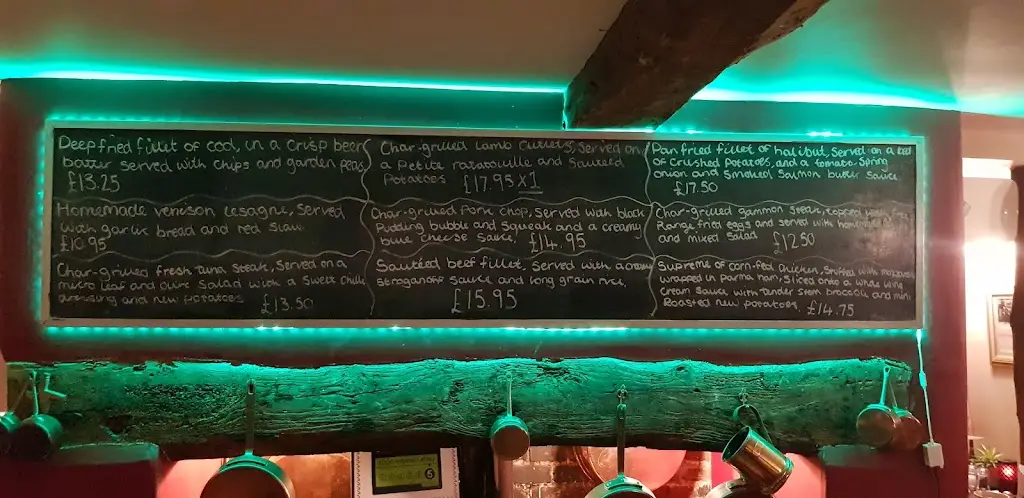 Deep fried fillet of cod, in a crisp beer
batter served with chips and garden peas
£13.25
Homemade venison lesagne, served
with garlic bread and red slaw
£10.95
Char-grilled fresh tuna steak, served on a
micro leaf and olive salad with a sweet chilli
dressing and new potatoes £13.50
Char-grilled lamb cutlets, served on
a petite ratatouille and sauteed
potatoes £17.95 x1
Char-grilled pork chop, served with black
pudding bubble and squeak and a creamy
blue cheese sauce, £14.95
Sautéed beef fillet, served with a cream
stroganoff sauce and long grain rice,
£15.95
Pan fried fillet of halibut, served on a bed
of crushed potatoes, and a tomato, spring
onion and smoked salmon butter sauce.
£17.50
Char-grilled gammon steak, topped
Range fried eggs and served with
and mixed salad £12.50
Supreme of corn-fed chicken, stuffed with
wrapped in parma ham sliced onto a white wine
cream sauce with tender stem broccoli, and mini
roasted new potatoes. £14.75
5